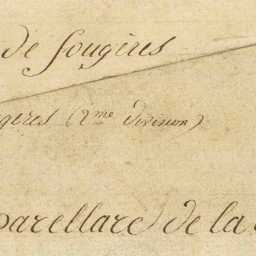 de fougères
gères (2me division)
parellare de la